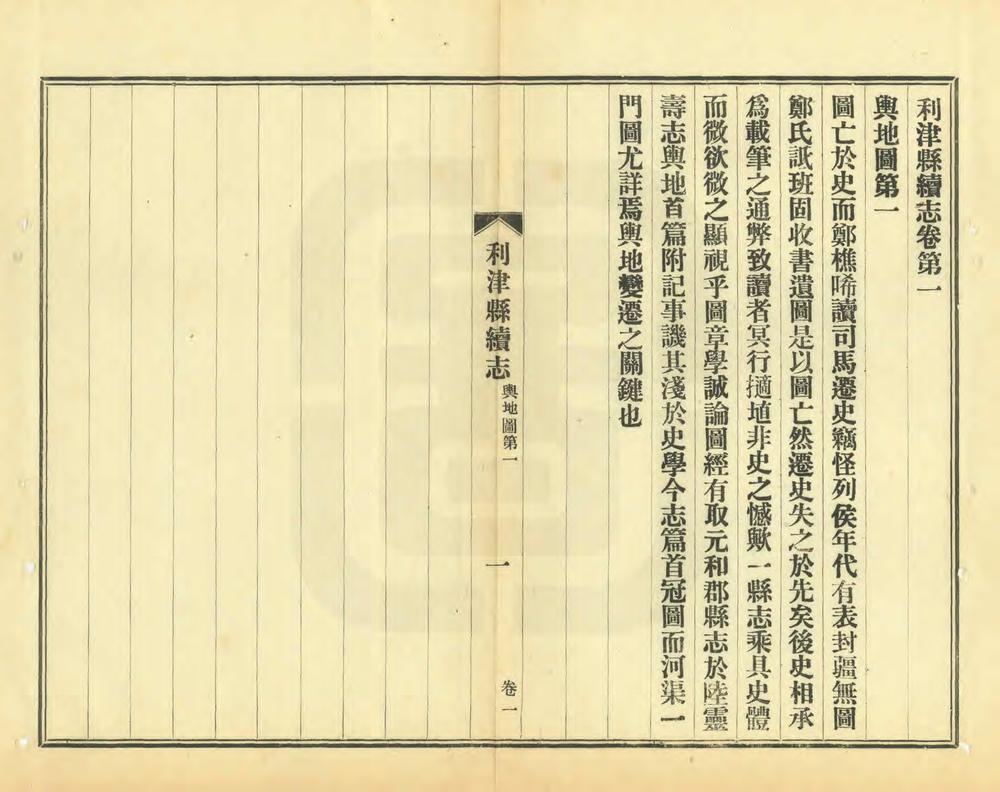 利津縣續志卷第一
輿地圖第一
圖亡於史而鄭樵唏讀司馬遷史竊怪列侯年代有表封疆無圖
鄭氏詆班固收書遺圖是以圖亡然遷史失之於先矣後史相承
爲載筆之通弊致讀者冥行擿埴非史之憾歟一縣志乘具史體
而微欲微之顯視乎圖章學誠論圖經有取元和郡縣志於陸靈
壽志輿地首篇附記事譏其淺於史學今志篇首冠圖而河渠一
門圖尤詳焉輿地變遷之關鍵也
利津縣續志 輿地圖第一 一 卷一